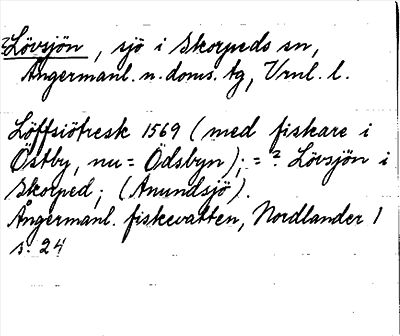 ?Lövsjön, sjö i Skorpeds sn,
Ångermanl. n. doms. tg, Vrnl. l.
Löffsiötresk 1569 (med fiskare i
Östby, nu = Ödsbyn); = ? Lövsjön i
Skorped; (Anundsjö).
Ångermanl. fiskevatten, Nordlander 1
s. 24